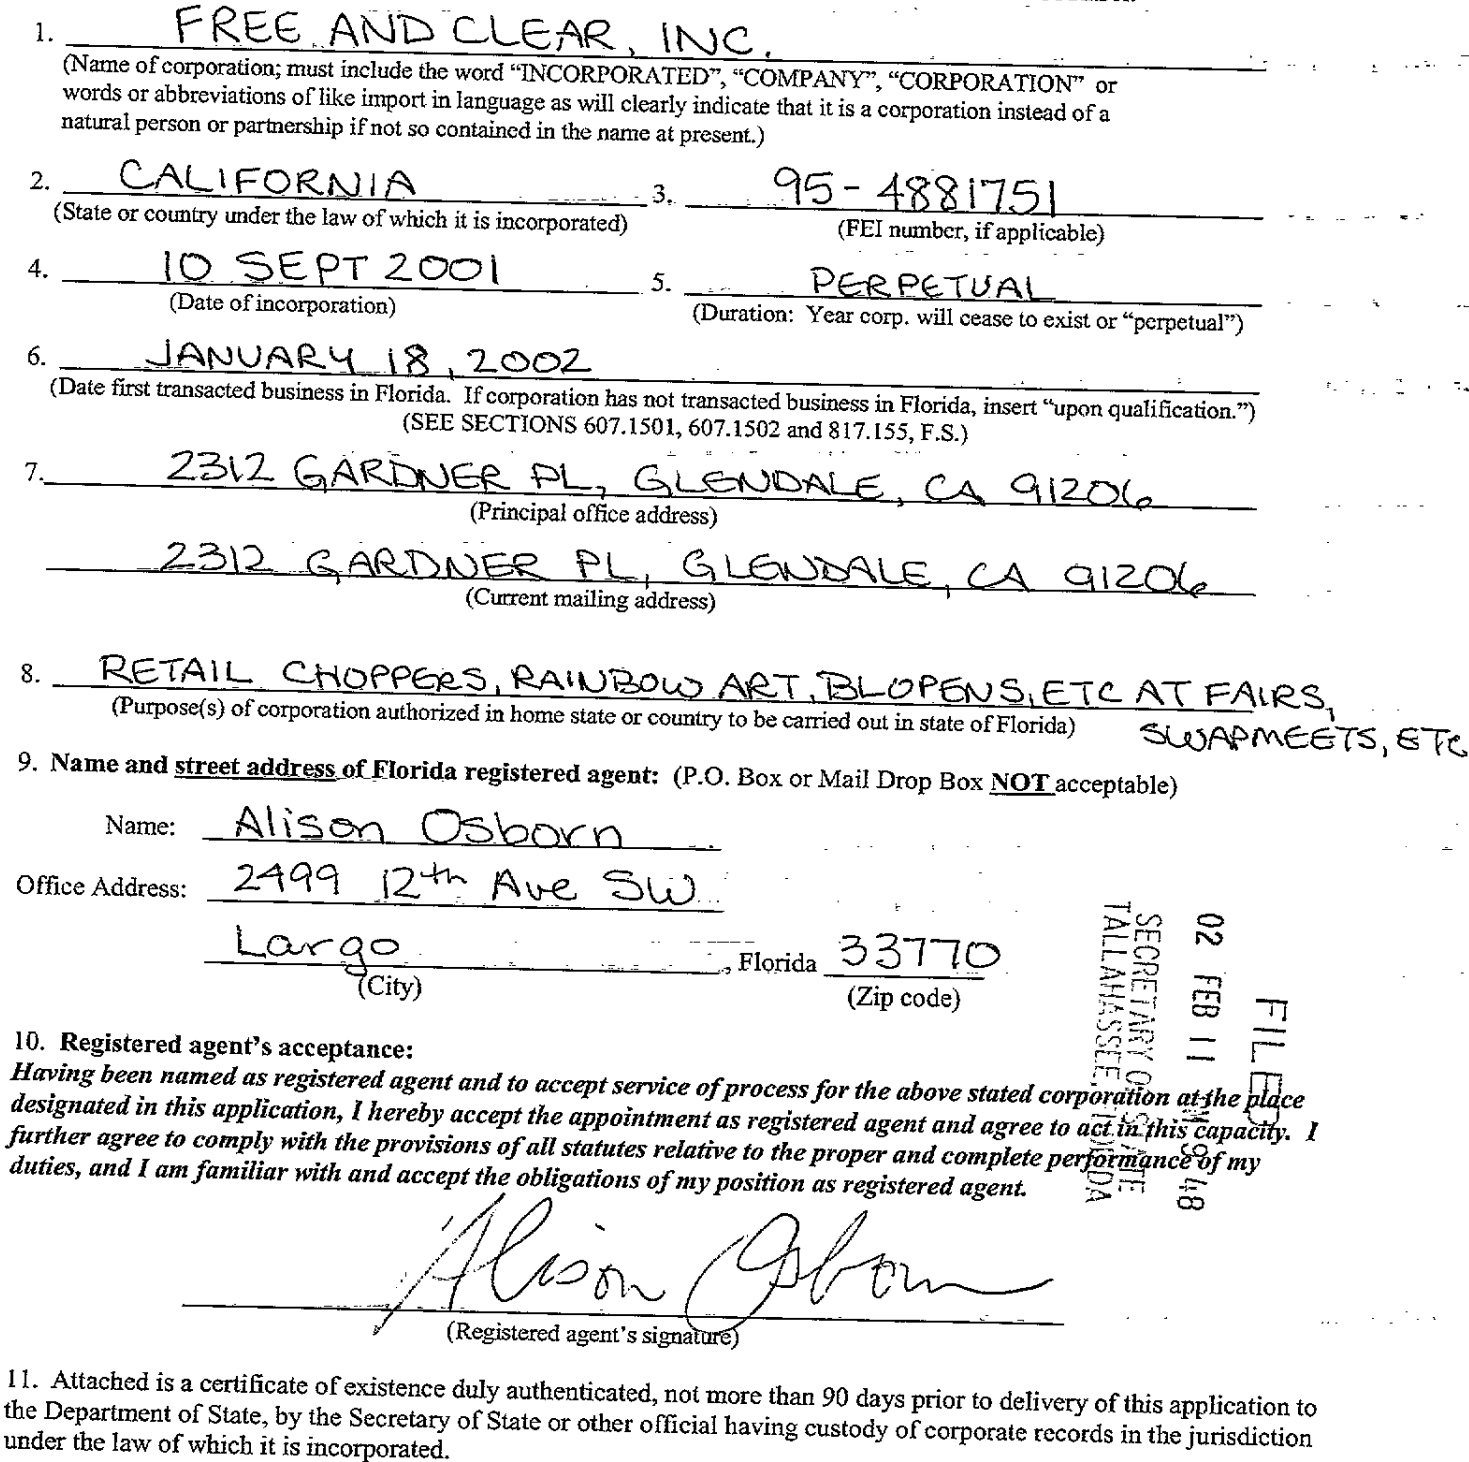 1. FREE AND CLEAR, INC.
(Name of corporation; must include the word “INCORPORATED”, “COMPANY”, “CORPORATION” or
words or abbreviations of like import in language as will clearly indicate that it is a corporation instead of a
natural person or partnership if not so contained in the name at present.)
2. CALIFORNIA 3. 95-4881751
(State or country under the law of which it is incorporated) (FEI number, if applicable)
4. 10 SEPT 2001 5. PERPETUAL
(Date of incorporation) (Duration: Year corp. will cease to exist or “perpetual”)
6. JANUARY 18, 2002
(Date first transacted business in Florida. If corporation has not transacted business in Florida, insert “upon qualification.”)
(SEE SECTIONS 607.1501, 607.1502 and 817.155, F.S.)
7. 2312 GARDNER PL, GLENDALE, CA 91206
(Principal office address)
2312 GARDNER PL, GLENDALE, CA 91206
(Current mailing address)
8. RETAIL CHOPPERS, RAINBOW ART, BLOPENS, ETC AT FAIRS,
(Purpose(s) of corporation authorized in home state or country to be carried out in state of Florida) SWAPMEETS, ETC
9. Name and street address of Florida registered agent: (P.O. Box or Mail Drop Box NOT acceptable)
Name: Alison Osborn
Office Address: 2499 12th Ave SW
Largo, Florida 33770
(City) (Zip code)
FILED
02 FEB 11 48
SECRETARY OF STATE
TALLAHASSEE, FLORIDA
10. Registered agent’s acceptance:
Having been named as registered agent and to accept service of process for the above stated corporation at the place
designated in this application, I hereby accept the appointment as registered agent and agree to act in this capacity. I
further agree to comply with the provisions of all statutes relative to the proper and complete performance of my
duties, and I am familiar with and accept the obligations of my position as registered agent.
Alison Osborn
(Registered agent’s signature)
11. Attached is a certificate of existence duly authenticated, not more than 90 days prior to delivery of this application to
the Department of State, by the Secretary of State or other official having custody of corporate records in the jurisdiction
under the law of which it is incorporated.